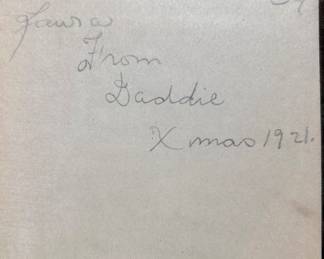 Laura
From
Daddie
Xmas 1921.